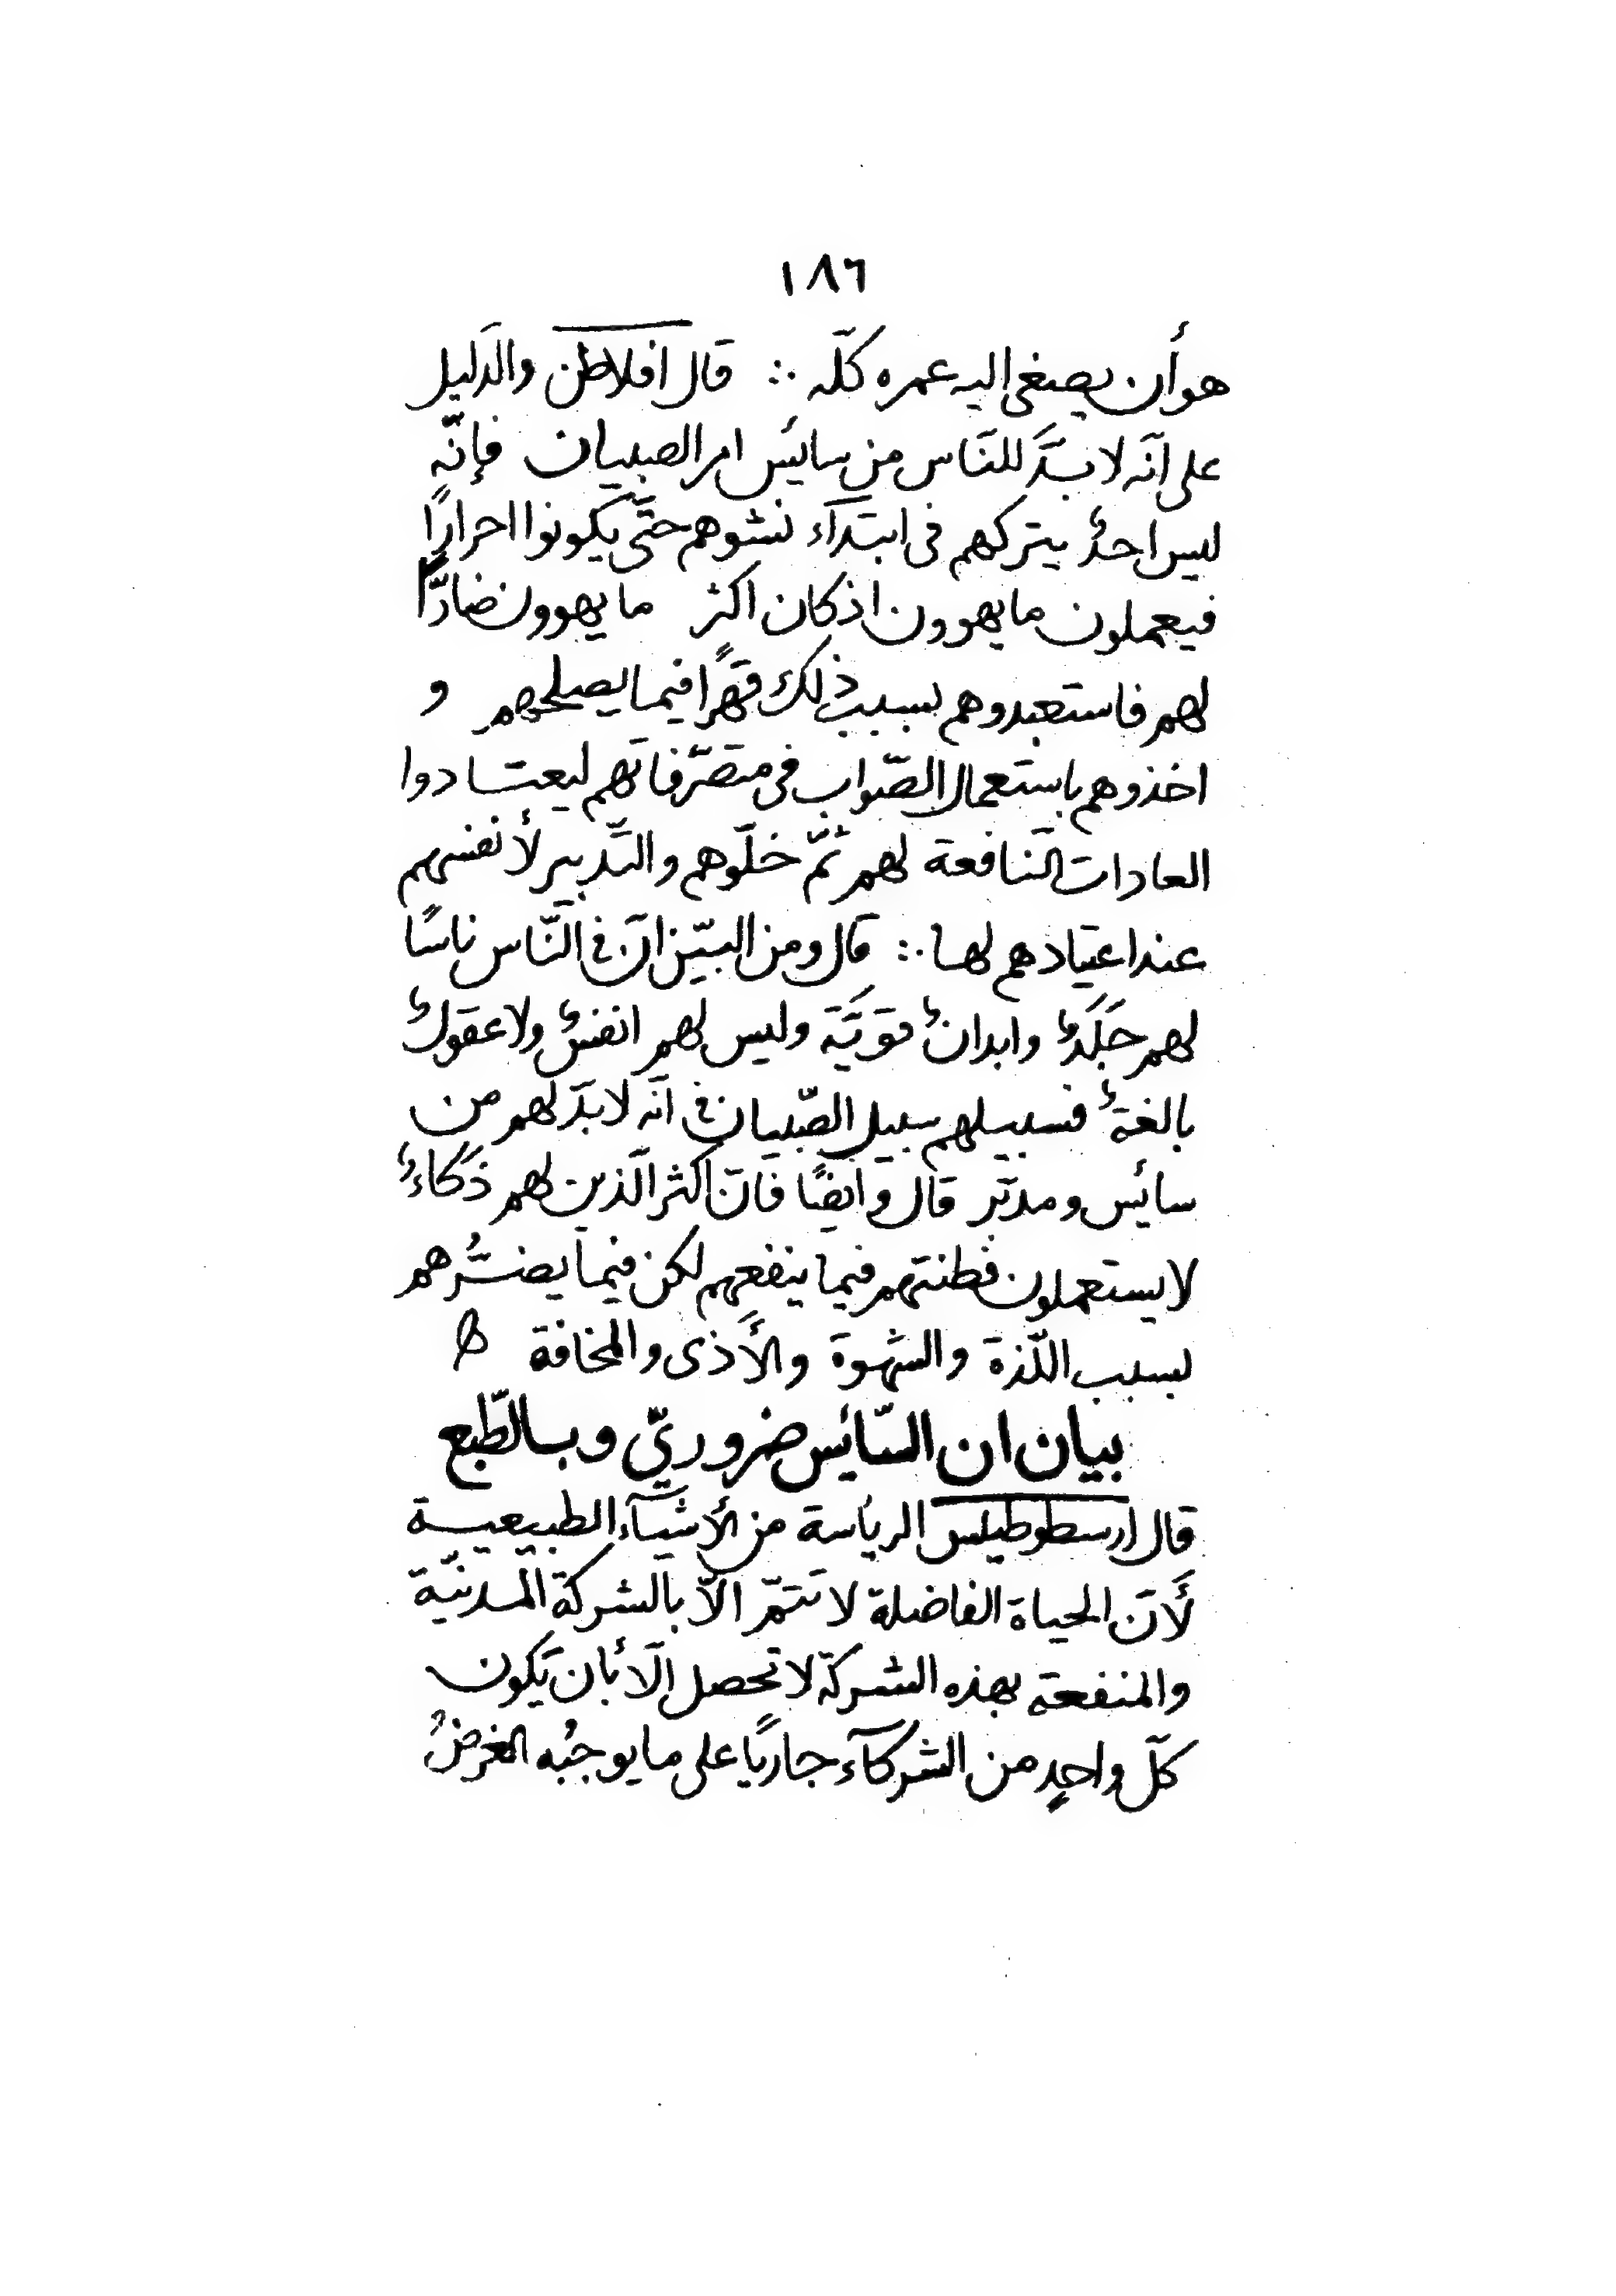 ١٨٦
هو أن يصغى اليه عمره كلّه ∴ قال افلاطن والدّليل
على انّه لا بدَّ للنّاس من سائس امر الصبيان فإنّه
ليس احدٌ يتركهم فى ابتدآء نشوهم حتّى يكونوا احرارًا
فيعملون ما يهوون اذ كان اكثر ما يهوون ضارًّا
لهم فاستعبدوهم بسبب ذلك قهرًا فيما يصلحهم و
اخذوهم باستعمال الصّواب فى متصرّفاتهم ليعتادوا
العادات النّافعة لهم ثمّ خلّوهم والتّدبير لأنفسهم
عند اعتيادهم لها ∴ قال ومن البيّن انّ فى النّاس ناسًا
لهم جَلَدٌ وابدانٌ قويَّة وليس لهم انفسٌ ولا عقولٌ
بالغةٌ فسبيلهم سبيل الصّبيان فى انّه لا بدّ لهم من
سائس ومدبّر قال وايضًا فانّ اكثر الّذين لهم ذَكاءٌ
لا يستعملون فطنتهم فيما ينفعهم لكن فيما يضُرّهم
بسبب اللّذة والشهوة والأذى والمخافة
بيان ان السّائس ضروريّ وبالطّبع
قال ارسطوطيلس الرياسة من الأشيآء الطبيعية
لأنّ الحياة الفاضلة لا تتمّ الاّ بالشركة المدنيّة
والمنفعة بهذه الشركة لا تحصل الّا بأن يكون
كلّ واحدٍ من الشركآء جاريًا على ما يوجبُه الغرضُ